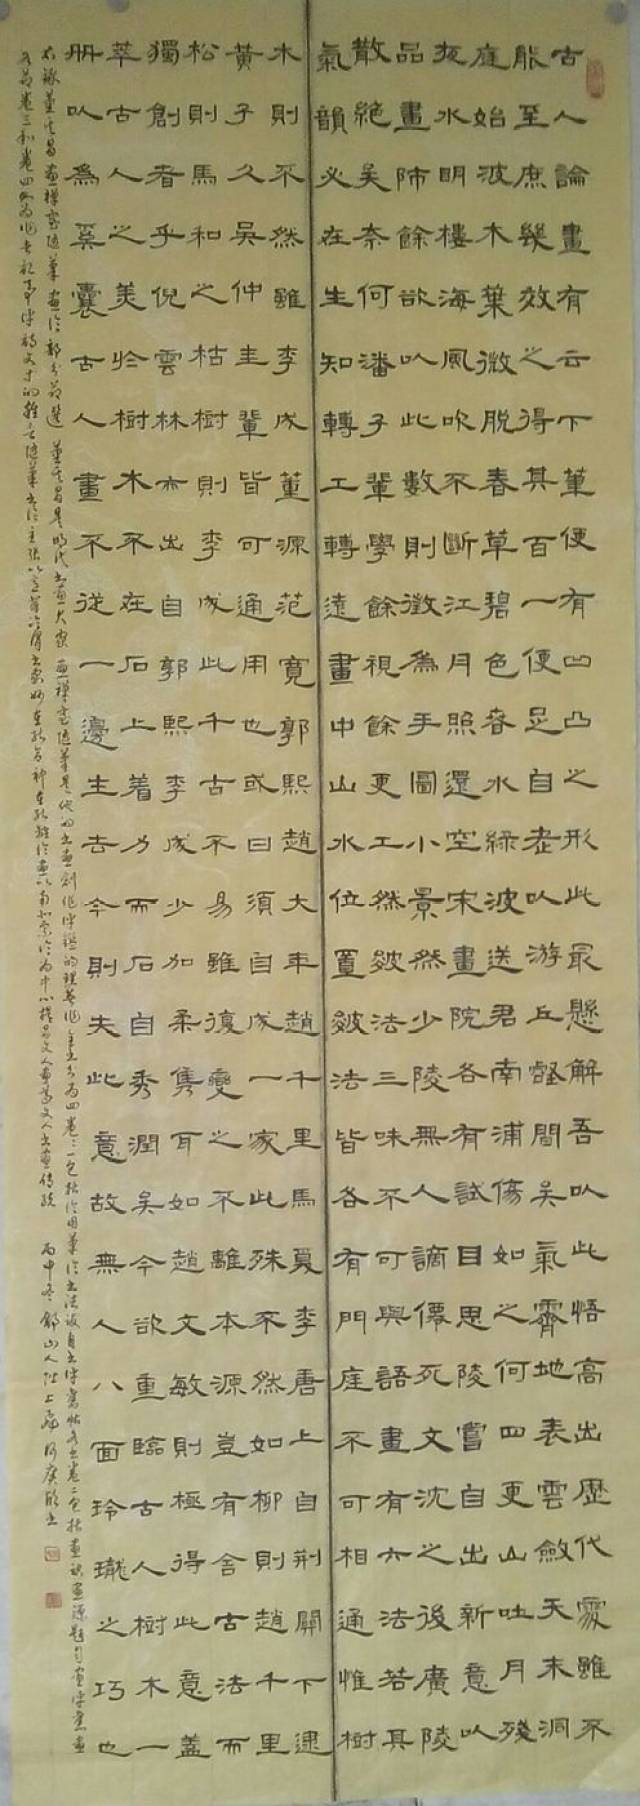 古人論畫有云下筆便有凹凸之形此最懸解吾以此悟高出歷代處雖不
能至庶幾效之得其百一便足自老以游丘壑間吳氣霽地表雲斂天末洞
庭始波木葉微脫春草碧色春水綠波送君南浦傷如之何四更山吐月殘
夜水明樓海風吹不斷江月照還空宋畫院各有試目思陵嘗自出新意以
品畫師餘欲以此數則徵為手圖小景然少陵無人謫僊死文沈之後廣陵
散絕矣奈何潘子輩學餘視餘更工然皴法三昧不可與語畫有六法若其
氣韻必在生知轉工轉遠畫中山水位置皴法皆各有門庭不可相通惟樹
木則不然雖李成董源范寬郭熙趙大年趙千里馬夏李唐上自荊關下逮
黃子久吳仲圭輩皆可通用也或曰須自成一家此殊不然如柳則趙千里
松則馬和之枯樹則李成此千古不易雖復變之不離本源豈有舍古法而
獨創者乎倪雲林亦出自郭熙李成少加柔雋耳如趙文敏則極得此意蓋
萃古人之美於樹木不在石上着力而石自秀潤矣今欲重臨古人樹木一
冊以為奚囊古人畫不從一邊生去今則失此意故無人八面玲瓏之巧也
右錄董其昌畫禪室隨筆畫論部分節選 董其昌是明代書畫大家 畫禪室隨筆是他的書畫創作評鑒的理 全書分為四卷 卷一包括論用筆論書法跋自書評舊帖 卷二包括畫訣畫源題自畫評舊畫
卷三和卷四 丙申冬